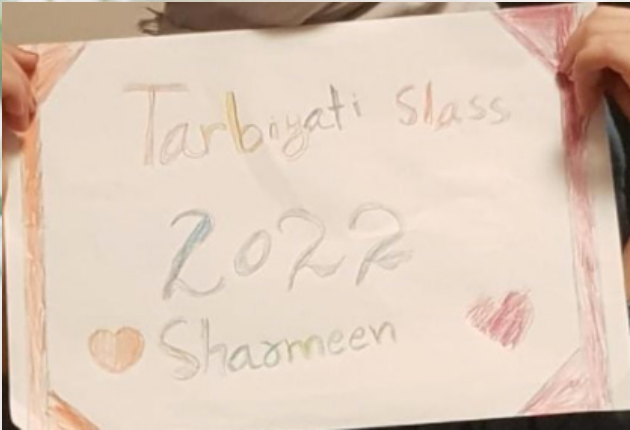 Tarbiyati Slass
2022
Sharmeen